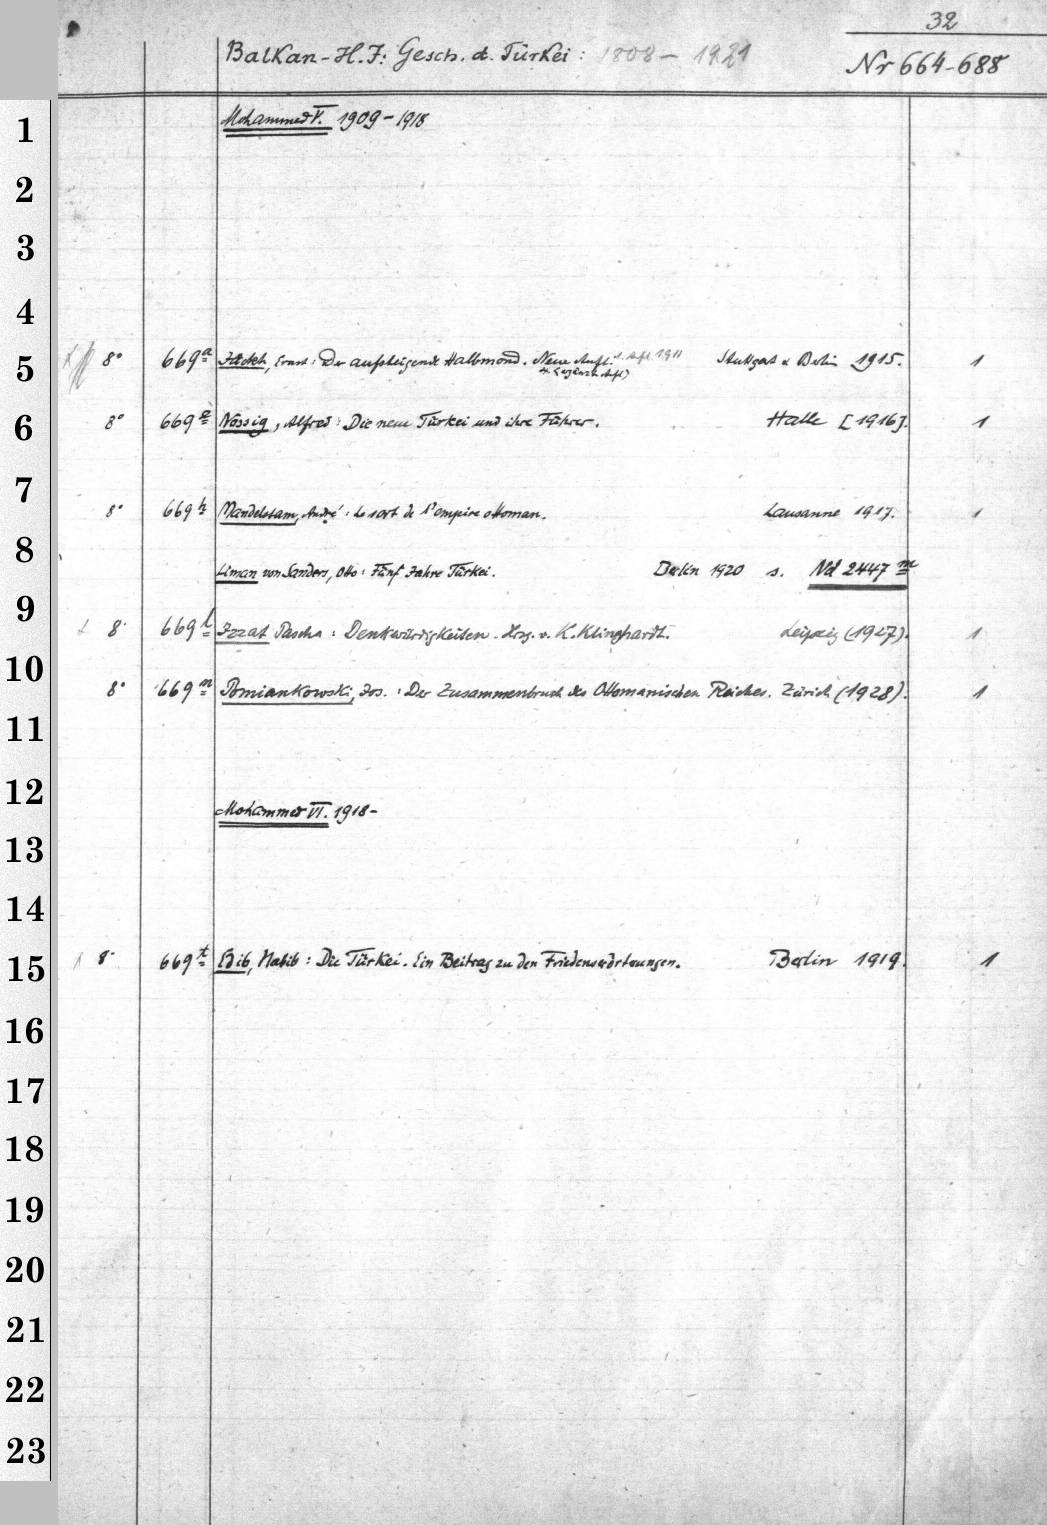 32
Balkan-H.I: Gesch. d. Türkei: 1808 - 1921
Nr 664-688
1 Mohammed V. 1909-1918
2
3
4
5 8° 669 a Jäckh, Ernst: Der aufsteigende Halbmond. Neue Aufl. 1. Aufl. 1911 Stuttgart & Berlin 1915. 1
6 8° 669 e Nossig, Alfred: Die neue Türkei und ihre Führer. Halle [1916]. 1
7 8° 669 h Mandelstam, André: Le sort de l'empire ottoman. Lausanne 1917. 1
8 Liman von Sanders, Otto: Fünf Jahre Türkei. Berlin 1920 s. Nd 2447 m
9 8° 669 l Izzat Pascha: Denkwürdigkeiten. Hrsg. v. K. Klinghardt. Leipzig (1927). 1
10 8° 669 m Pomiankowski, Jos.: Der Zusammenbruch des Ottomanischen Reiches. Zürich (1928). 1
11
12 Mohammed VI. 1918-
13
14
15 8° 669 t Edib, Habib: Die Türkei. Ein Beitrag zu den Friedenserörterungen. Berlin 1919. 1
16
17
18
19
20
21
22
23